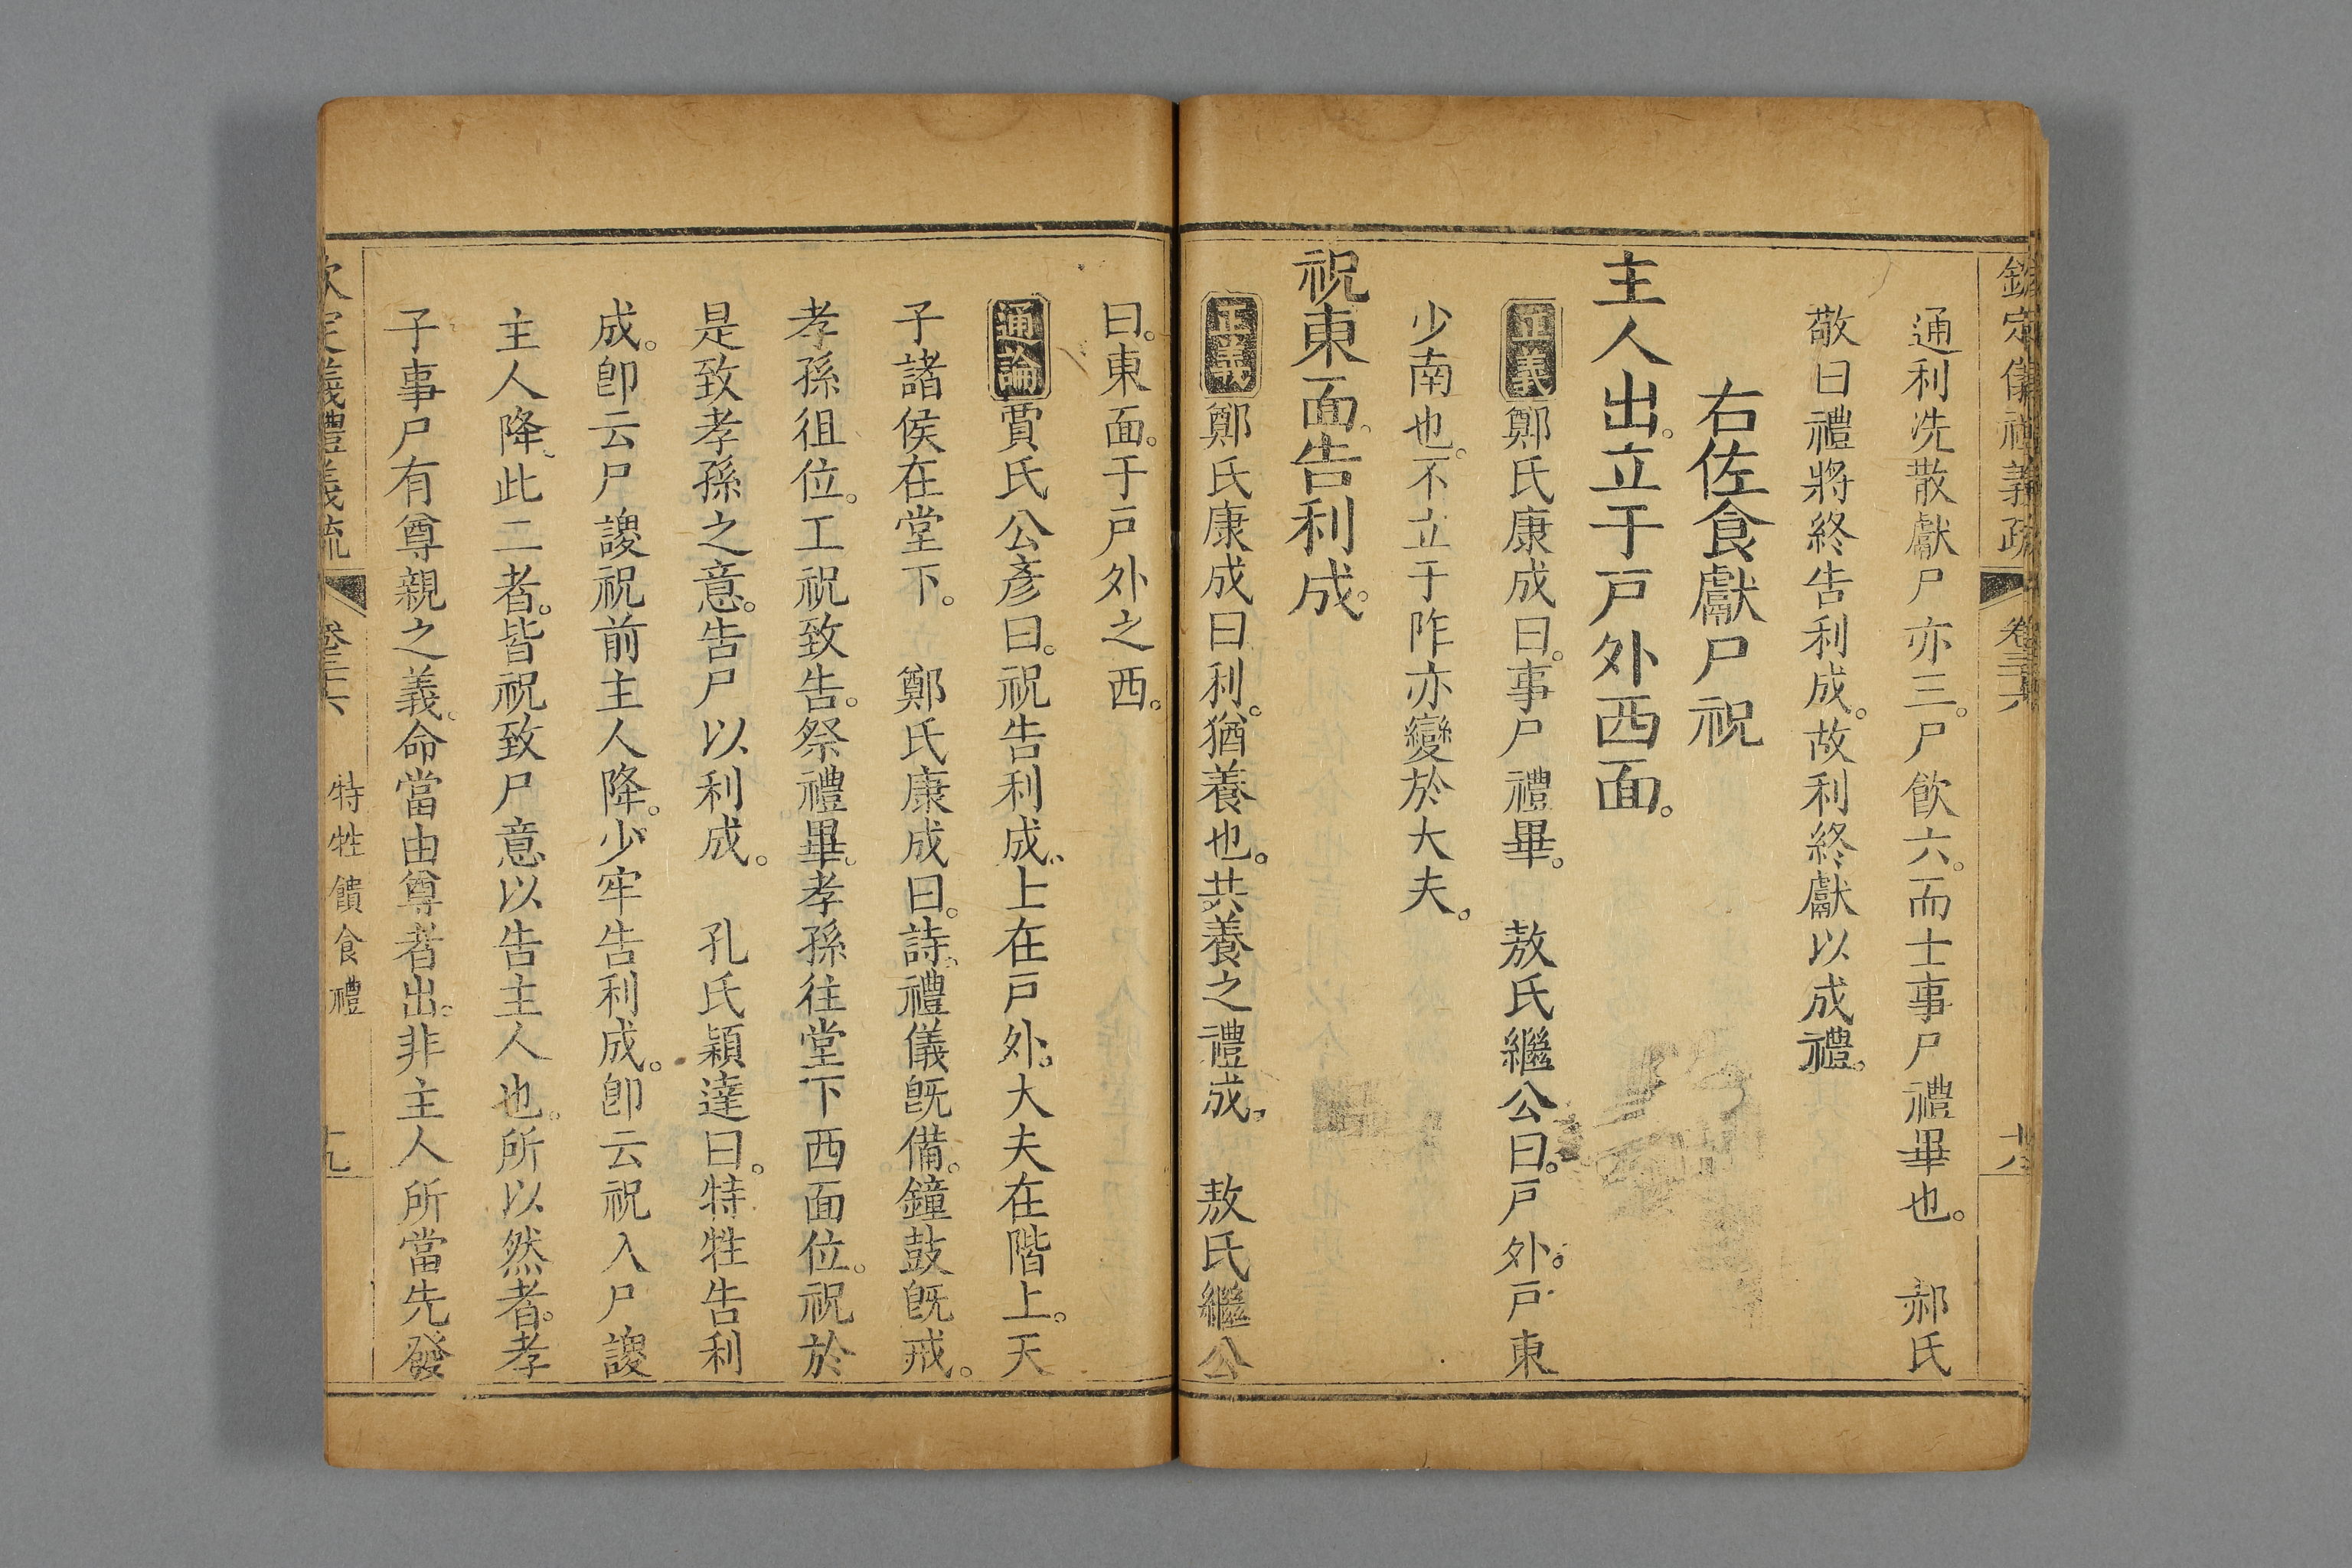 欽定儀禮義疏 卷三十六 十八
通利洗散獻尸亦三。尸飮六。而士事尸禮畢也。 郝氏
敬曰禮將終告利成。故利終獻以成禮。
右佐食獻尸祝
主人出。立于戸外西面。
正義 鄭氏康成曰。事尸禮畢。 敖氏繼公曰。戸外。戸東
少南也。不立于阼亦變於大夫。
祝東面。告利成。
正義 鄭氏康成曰利。猶養也。共養之禮成。 敖氏繼公
曰。東面。于戸外之西。
通論 賈氏公彥曰。祝告利成。上在戸外。大夫在階上。天
子諸侯在堂下。 鄭氏康成曰。詩。禮儀旣備。鐘鼓旣戒。
孝孫徂位。工祝致告。祭禮畢。孝孫往堂下西面位。祝於
是致孝孫之意。告尸以利成。 孔氏穎達曰。特牲告利
成。卽云尸謖祝前主人降。少牢告利成。卽云祝入尸謖
主人降。此二者。皆祝致尸意以告主人也。所以然者。孝
子事尸有尊親之義。命當由尊者出。非主人所當先發
欽定儀禮義疏 卷三十六 特牲饋食禮 十九